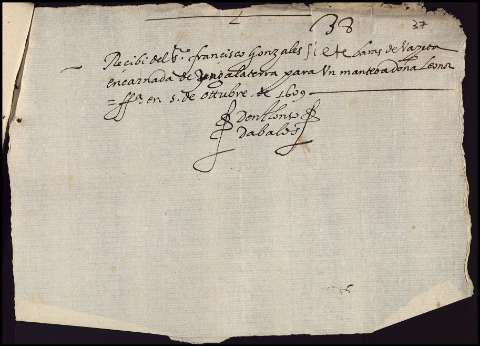 38 37
Recibi del s.r francisco Gonzales siete baras de vayeta
encarnada de yngalaterra para un manteo a doña Leonor
= ffa en 5. de ottubre de 1609
Don Alonso
Dabalos